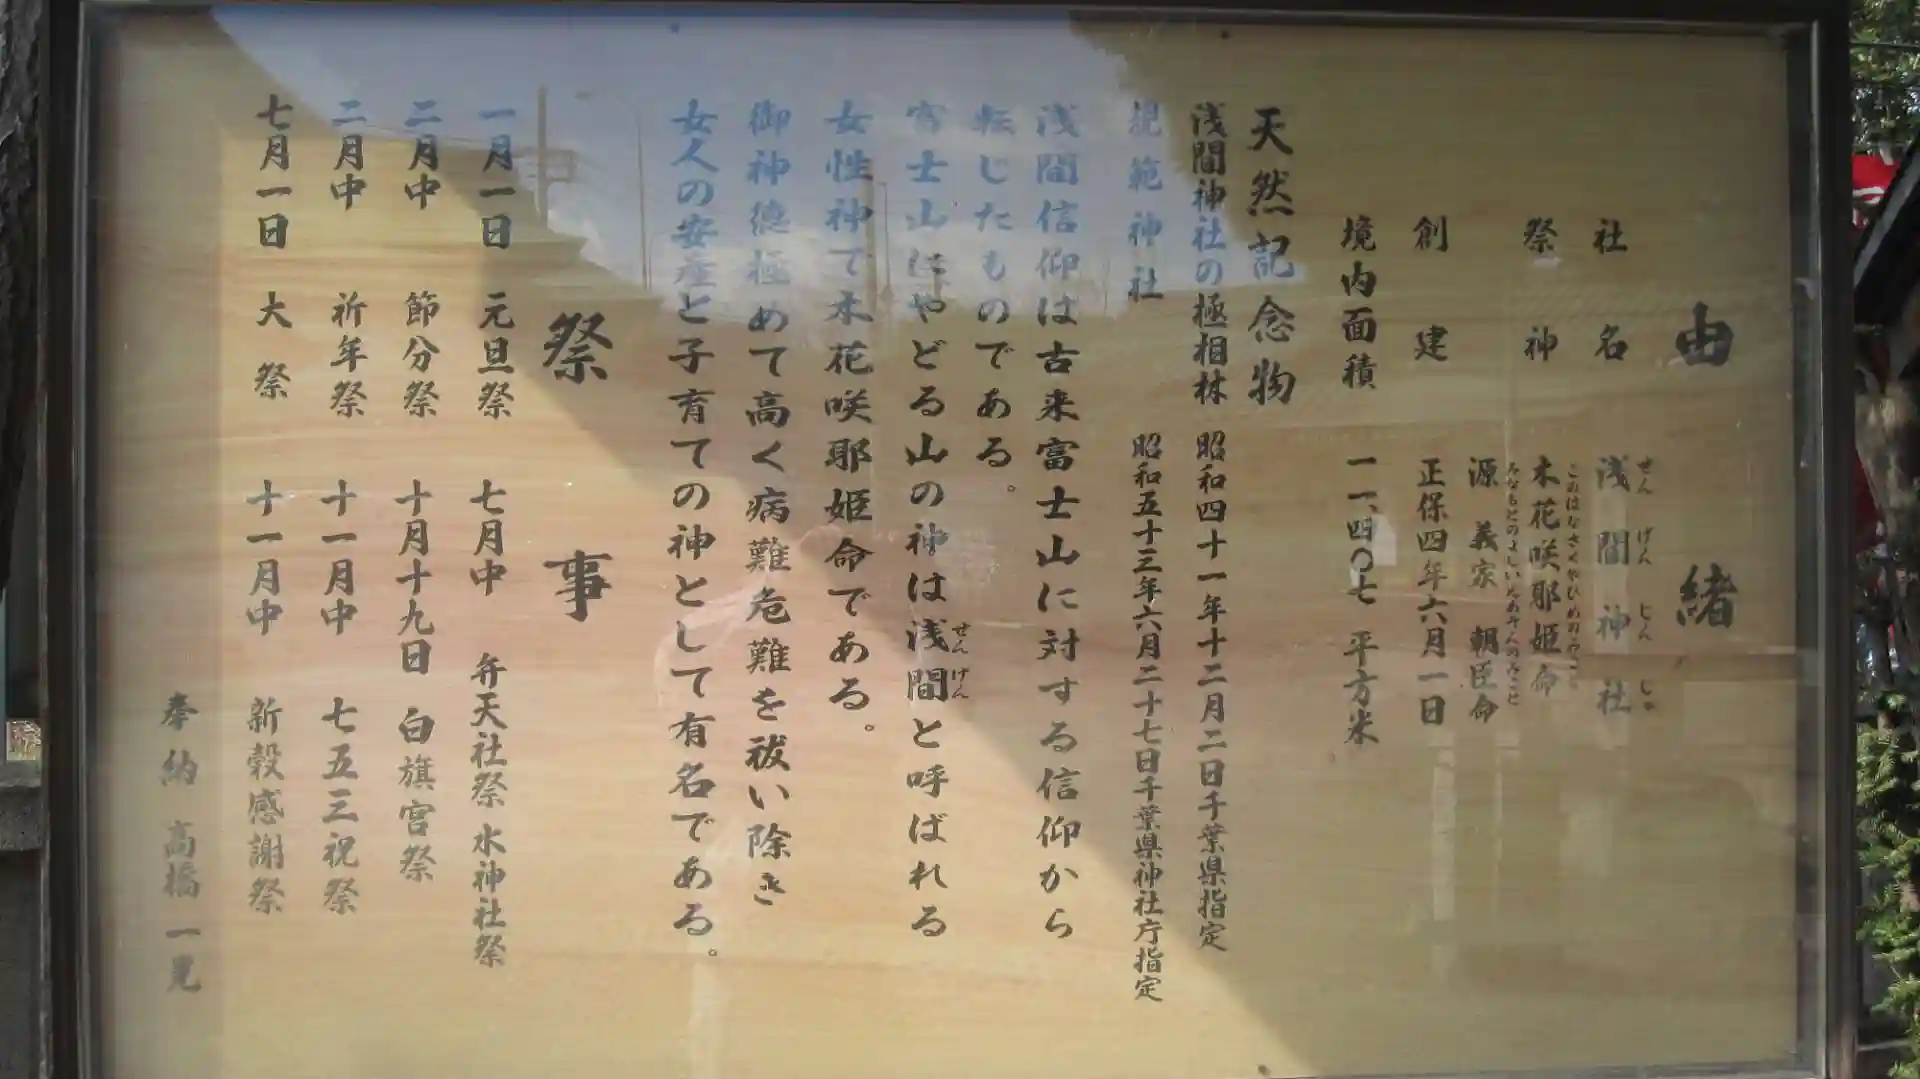 由緒
社名 浅間神社
せんげんじんじゃ
祭神 木花咲耶姫命
このはなさくやひめのみこと
源義家朝臣命
みなもとのよしいえあそんのみこと
創建 正保四年六月一日
境内面積 一一、四〇七平方米
天然記念物
浅間神社の極相林 昭和四十一年十二月二日千葉県指定
規範神社 昭和五十三年六月二十七日千葉県神社庁指定
浅間信仰は古来富士山に対する信仰から
転じたものである。
富士山にやどる山の神は浅間と呼ばれる
せんげん
女性神で木花咲耶姫命である。
御神徳極めて高く病難危難を祓い除き
女人の安産と子育ての神として有名である。
祭事
一月一日 元旦祭 七月中 弁天社祭 水神社祭
二月中 節分祭 十月十九日 白旗宮祭
二月中 祈年祭 十一月中 七五三祝祭
七月一日 大祭 十一月中 新穀感謝祭
奉納 高橋一晃